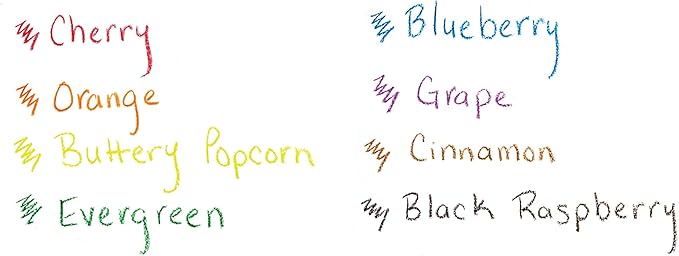 Cherry
Orange
Buttery Popcorn
Evergreen
Blueberry
Grape
Cinnamon
Black Raspberry